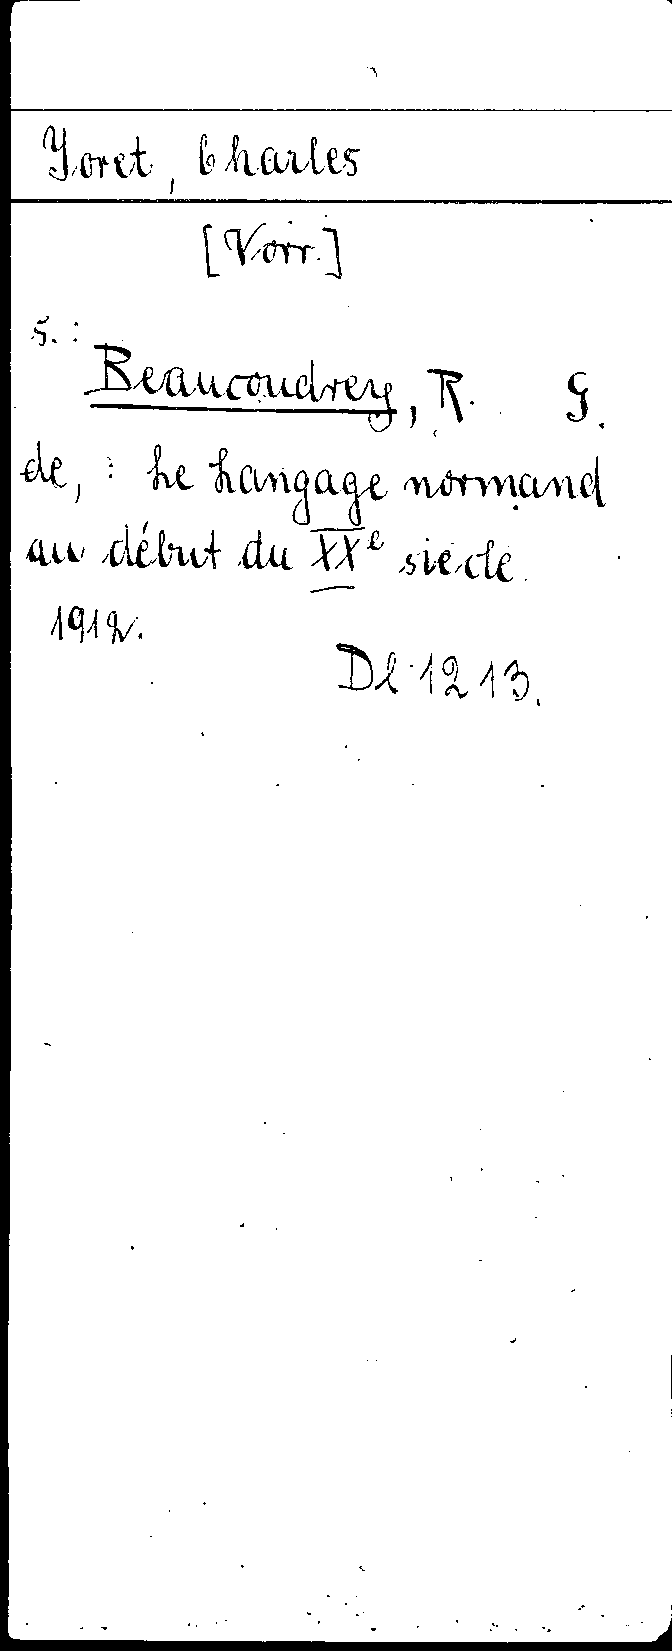 Joret, Charles
[Vorr.]
s.:
Beaucoudrey, R. G.
de, : Le Langage normand
au début du XXe siècle
1912.
Dl 1213.